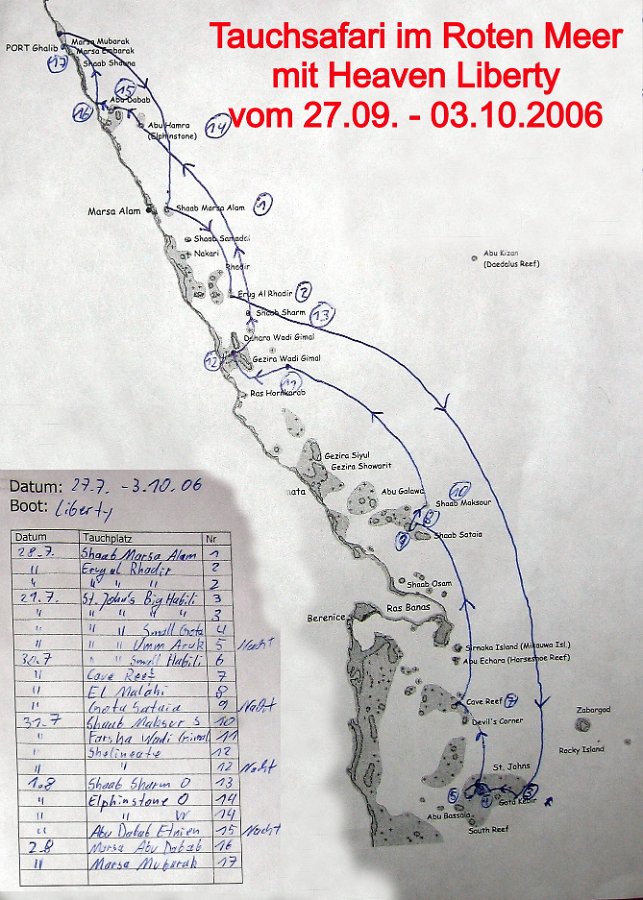 Tauchsafari im Roten Meer
mit Heaven Liberty
vom 27.09. - 03.10.2006
Marsa Mubarak
PORT Ghalib
Marsa Embarak
17
Shaab Shauna
15
Abu Dabab
16
Abu Hamra
(Elphinstone)
14
Marsa Alam
Shaab Marsa Alam
1
Shaab Samadai
Nakari
Abu Kizan
(Daedalus Reef)
Rhadir
Erug Al Rhadir
2
Shaab Sharm
13
Dahara Wadi Gimal
12
Gezira Wadi Gimal
11
Ras Honkorab
Gezira Siyul
Gezira Showarit
Abu Galawa
10
Shaab Maksour
8
9
Shaab Sataia
Shaab Osam
Ras Banas
Berenice
Sirnaka Island (Mikauwa Isl.)
Abu Echara (Horseshoe Reef)
Cave Reef
7
Zabargad
Devil's Corner
Rocky Island
St. Johns
5
4
3
Gota Kebir
Abu Bassala
South Reef
Datum: 27.7. - 3.10.06
Boot: Liberty
Datum Tauchplatz Nr
28.7. Shaab Marsa Alam 1
" Erug ul Rhadir 2
" " " " 2
29.7. St. John's Big Habili 3
" " " " " 3
" " " Small Gota 4
" " " Umm Aruk 5 Nacht
30.7 " " Small Habili 6
" Cave Reef 7
" El Malahi 8
" Gota Sataia 9 Nacht
31.7 Shaab Maksur S 10
" Farsha Wadi Gimal 11
" 12
" 12 Nacht
1.8 Shaab Sharm O 13
" Elphinstone O 14
" " W 14
" Abu Dabab 15 Nacht
2.8 Marsa Abu Dabab 16
" Marsa Mubarak 17